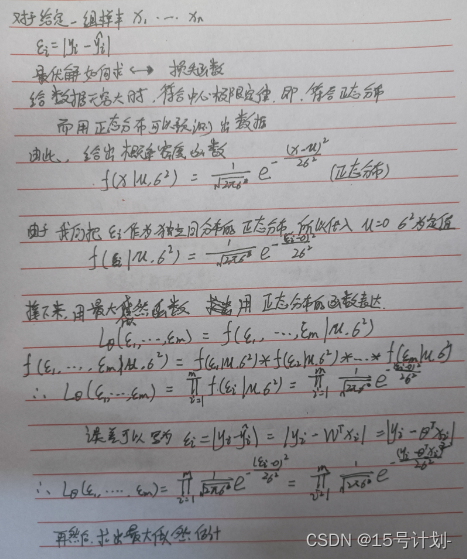 对于给定一组样本 x₁ ⋯ xₙ
εᵢ = |yᵢ - ŷᵢ|
最优解如何求 ↔ 损失函数
给数据无穷大时,符合中心极限定律,即,符合正态分布
而用正态分布可以预测出数据
由此,给出概率密度函数
f(x|μ,σ²) = 1/√(2πσ²) e^(-(x-μ)²/2σ²) (正态分布)
由于我们把 εᵢ 作为独立同分布的正态分布,所以代入 μ=0 σ²为定值
f(ε|μ,σ²) = 1/√(2πσ²) e^(-(εᵢ-0)²/2σ²)
接下来,由最大似然函数 用正态分布的函数表达
L_θ(ε₁,⋯,εₘ) = f(ε₁,⋯,εₘ|μ,σ²)
f(ε₁,⋯,εₘ|μ,σ²) = f(ε₁|μ,σ²)*f(ε₂|μ,σ²)*⋯*f(εₘ|μ,σ²)
∴ L_θ(ε₁,⋯,εₘ) = ∏ᵢ₌₁ᵐ f(εᵢ|μ,σ²) = ∏ᵢ₌₁ᵐ 1/√(2πσ²) e^(-(εᵢ-0)²/2σ²)
误差可以写为 εᵢ = |yᵢ-ŷᵢ| = |yᵢ-Wᵀxᵢ| = |yᵢ-θᵀxᵢ|
∴ L_θ(ε₁,⋯,εₘ) = ∏ᵢ₌₁ᵐ 1/√(2πσ²) e^(-(εᵢ-0)²/2σ²) = ∏ᵢ₌₁ᵐ 1/√(2πσ²) e^(-(yᵢ-θᵀxᵢ)²/2σ²)
再然后,求出最大似然估计
CSDN @15号计划-